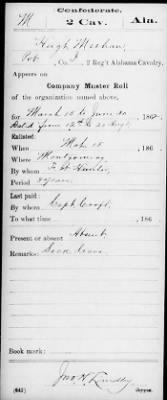 Confederate.
M 2 Cav. Ala.
Hugh Meehan
Pvt, Co. I, 2 Reg't Alabama Cavalry.
Appears on
Company Muster Roll
of the organization named above,
for March 18 to June 30, 186
Enlisted:
When Mch 18, 186
Where Montgomery
By whom F. W. Hunter
Period 3 years
Last paid:
By whom Capt Croft
To what time , 186
Present or absent Absent
Remarks: Sick
Book mark:
Jno. H. Lindley
(642) Copyist.